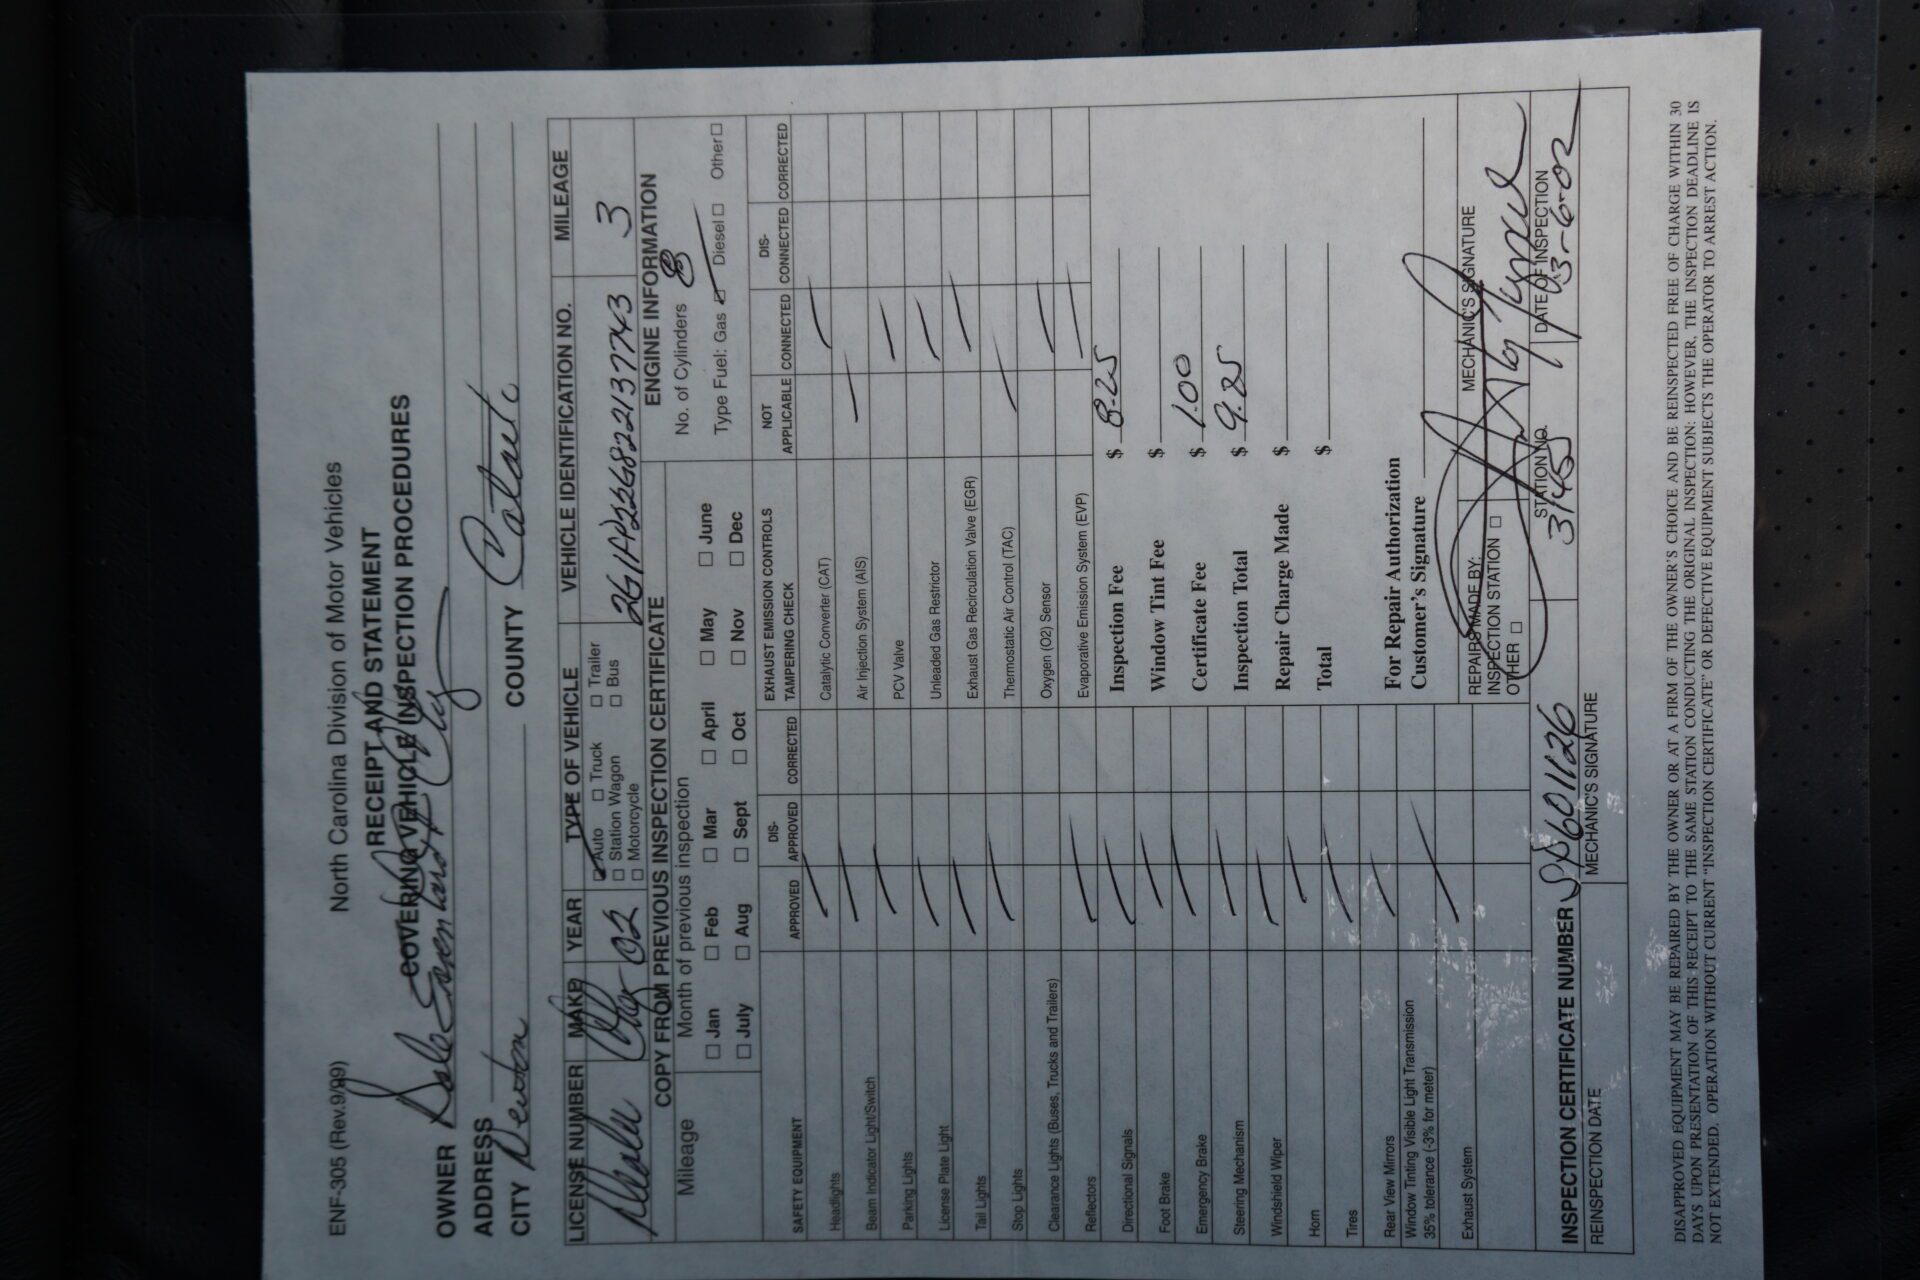 ENF-305 (Rev.9/99)
North Carolina Division of Motor Vehicles
RECEIPT AND STATEMENT
COVERING VEHICLE INSPECTION PROCEDURES
OWNER Dale Earnhardt Chev
ADDRESS
CITY Newton COUNTY
LICENSE NUMBER MAKE YEAR TYPE OF VEHICLE VEHICLE IDENTIFICATION NO. MILEAGE
Dealer Chev 02 □ Auto □ Truck □ Trailer 3
□ Station Wagon □ Bus
□ Motorcycle
COPY FROM PREVIOUS INSPECTION CERTIFICATE ENGINE INFORMATION
Mileage Month of previous inspection No. of Cylinders 8
□ Jan □ Feb □ Mar □ April □ May □ June
□ July □ Aug □ Sept □ Oct □ Nov □ Dec
Type Fuel: Gas □ Diesel □ Other □
SAFETY EQUIPMENT APPROVED DIS-APPROVED CORRECTED
Headlights
Beam Indicator Light/Switch
Parking Lights
License Plate Light
Tail Lights
Stop Lights
Clearance Lights (Buses, Trucks and Trailers)
Reflectors
Directional Signals
Foot Brake
Emergency Brake
Steering Mechanism
Windshield Wiper
Horn
Tires
Rear View Mirrors
Window Tinting Visible Light Transmission
35% tolerance (-3% for meter)
Exhaust System
EXHAUST EMISSION CONTROLS
TAMPERING CHECK
NOT APPLICABLE CONNECTED DIS-CONNECTED CORRECTED
Catalytic Converter (CAT)
Air Injection System (AIS)
PCV Valve
Unleaded Gas Restrictor
Exhaust Gas Recirculation Valve (EGR)
Thermostatic Air Control (TAC)
Oxygen (O2) Sensor
Evaporative Emission System (EVP)
Inspection Fee $ 8.25
Window Tint Fee $
Certificate Fee $ 1.00
Inspection Total $ 9.25
Repair Charge Made $
Total $
For Repair Authorization
Customer's Signature
REPAIRS MADE BY: MECHANIC'S SIGNATURE
INSPECTION STATION □
OTHER □
INSPECTION CERTIFICATE NUMBER STATION NO. DATE OF INSPECTION
31455 03-6-02
REINSPECTION DATE MECHANIC'S SIGNATURE
DISAPPROVED EQUIPMENT MAY BE REPAIRED BY THE OWNER OR AT A FIRM OF THE OWNER'S CHOICE AND BE REINSPECTED FREE OF CHARGE WITHIN 30
DAYS UPON PRESENTATION OF THIS RECEIPT TO THE SAME STATION CONDUCTING THE ORIGINAL INSPECTION: HOWEVER, THE INSPECTION DEADLINE IS
NOT EXTENDED. OPERATION WITHOUT CURRENT "INSPECTION CERTIFICATE" OR DEFECTIVE EQUIPMENT SUBJECTS THE OPERATOR TO ARREST ACTION.